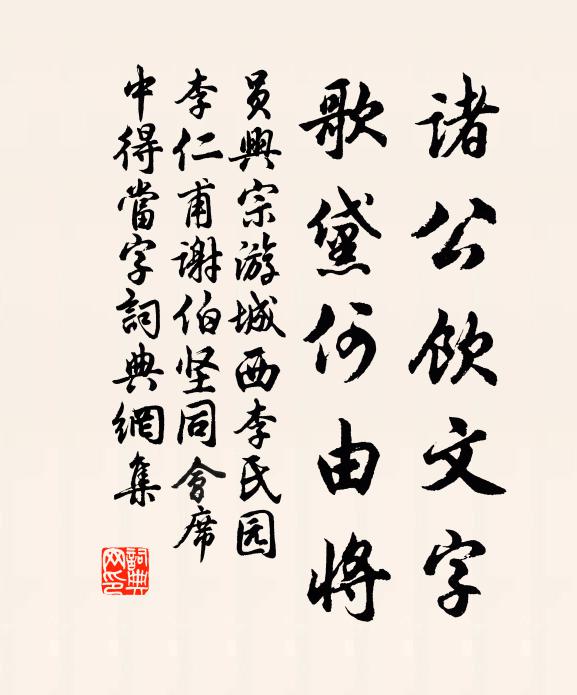 诸公饮文字
歌黛何由将
员興宗游城西李氏园
李仁甫谢伯坚同會席
中得當字詞典網集
詞典网印